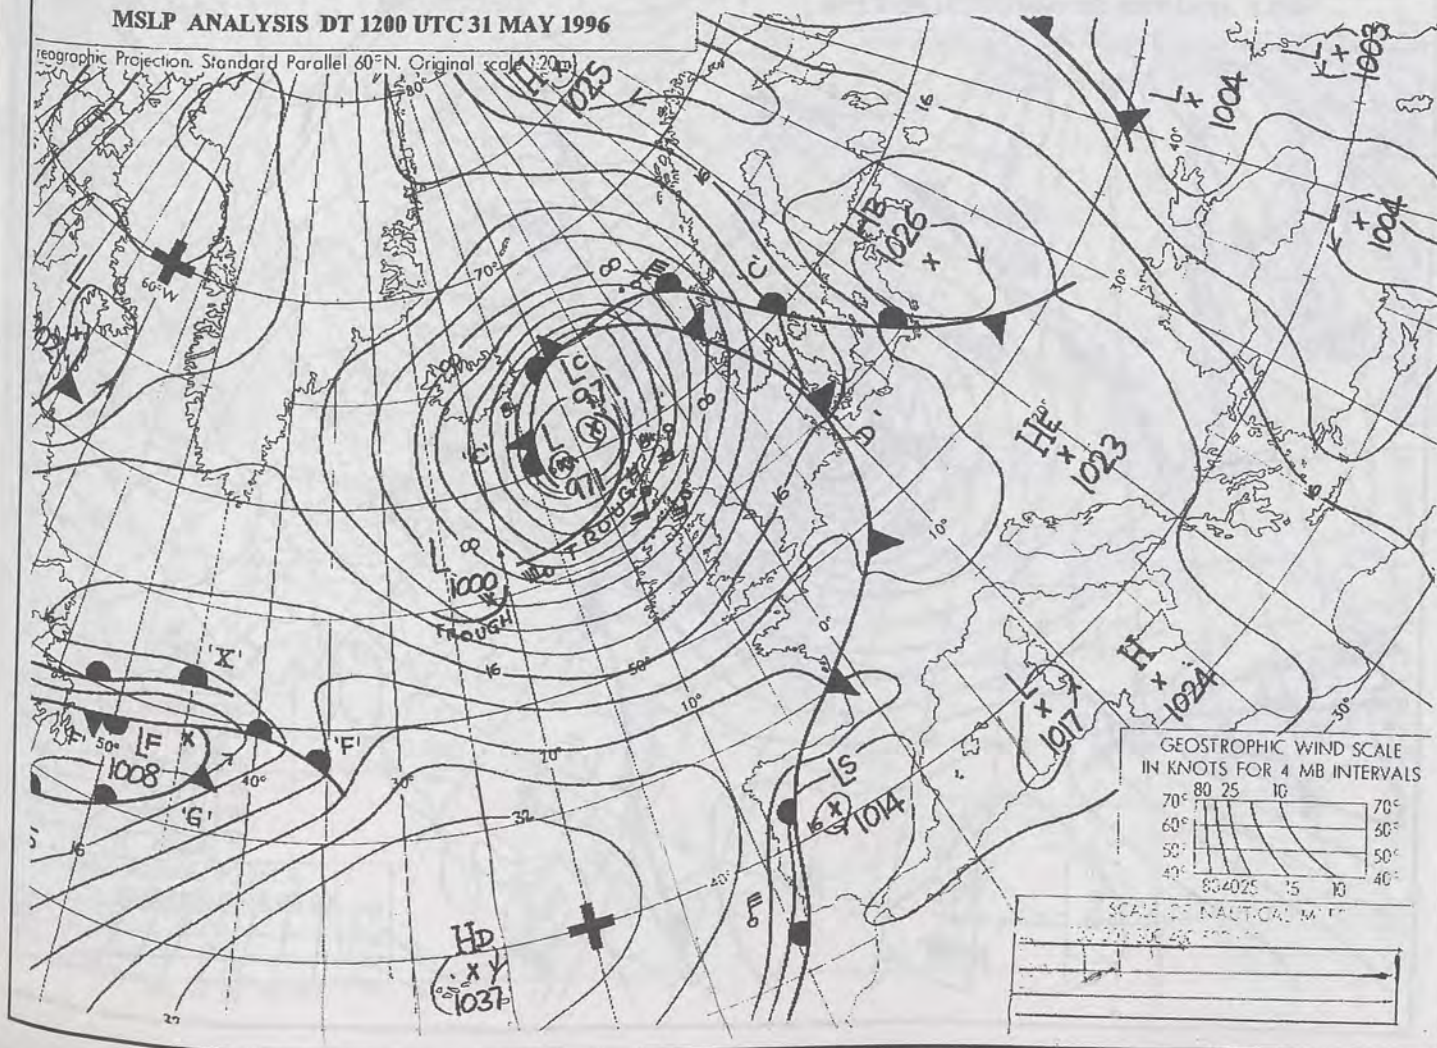 MSLP ANALYSIS DT 1200 UTC 31 MAY 1996
eographic Projection. Standard Parallel 60°N. Original scale 1:20m
80°
H
1025
L
1003
L
1004
40°
16
16
HB
1026
L
1004
70°
60°W
L
8
'C'
30°
LC
971
8
HE
1023
20°
'D'
'C'
L
971
TROUGH
16
16
10°
L
8
1000
TROUGH
0°
16
50°
10°
20°
'X'
H
1024
L
1017
30°
'F'
50°
LF
1008
'F'
40°
30°
'G'
16
LS
16
1014
32
40°
HD
Y
1037
GEOSTROPHIC WIND SCALE
IN KNOTS FOR 4 MB INTERVALS
80 25 10
70° 70°
60° 60°
50° 50°
40° 40°
80 40 25 15 10
SCALE OF NAUTICAL MILES